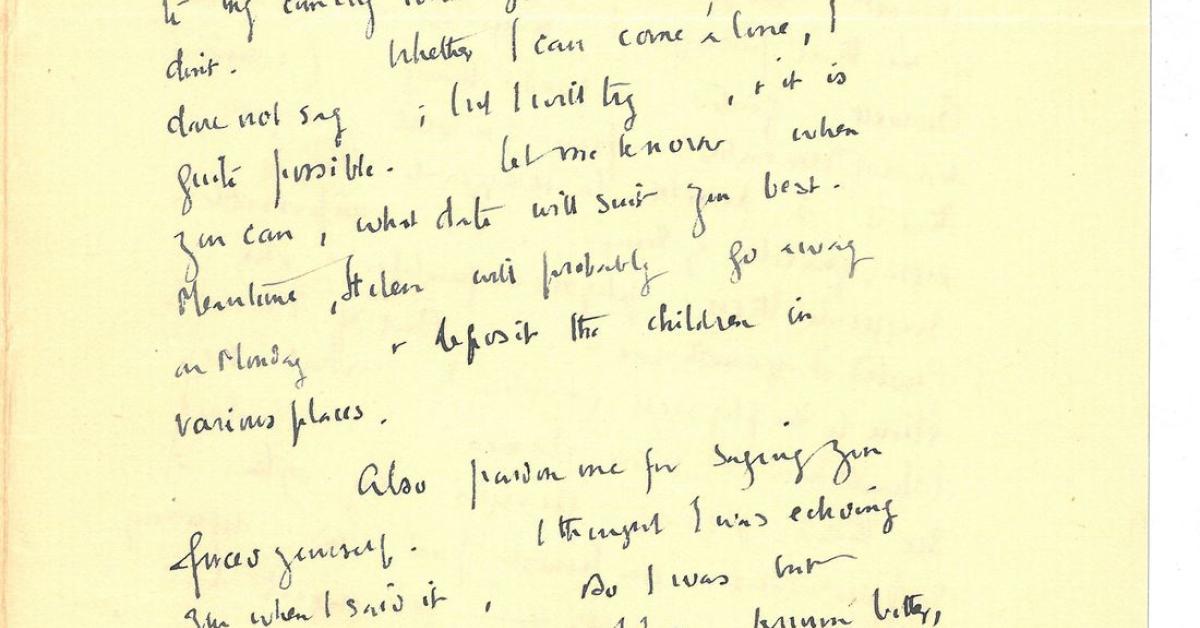 to my coming
don't. Whether I can come alone, I
dare not say ; but I will try , & it is
quite possible. Let me know when
you can, what date will suit you best.
Meantime, Helen will probably go away
on Monday & deposit the children in
various places.
Also pardon me for saying you
forced yourself. I thought I was echoing
you when I said it , So I was but
known better,